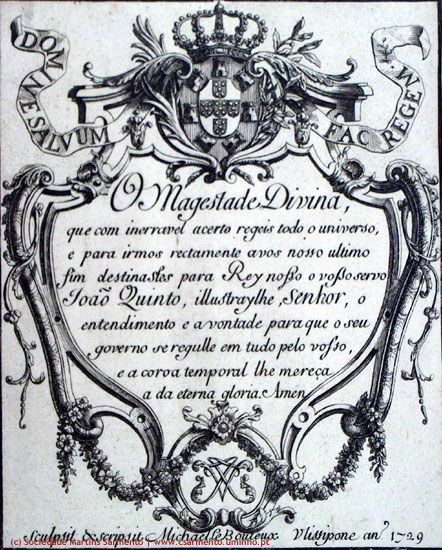 DOMINE SALVUM
FAC REGEM.
O Magestade Divina,
que com inerravel acerto regeis todo o universo,
e para irmos rectamente a vos nosso ultimo
fim destinastes para Rey nosso o vosso servo
Joaõ Quinto, illustraylhe, Senhor, o
entendimento e a vontade para que o seu
governo se regulle em tudo pelo vosso,
e a coroa temporal lhe mereça
a da eterna gloria. Amen
Sculpsit & scripsit Michael le Bouteux Ulissipone anº 1729
(c) Sociedade Martins Sarmento | www.csarmento.uminho.pt